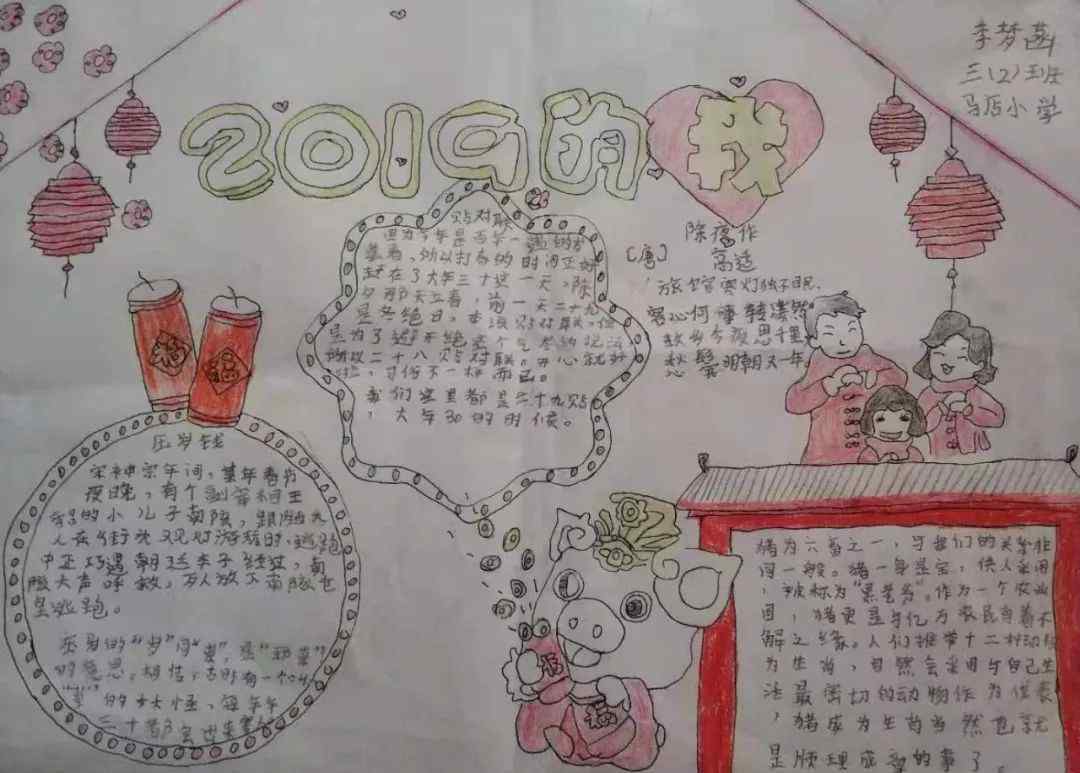 李梦菡
三(2)班
马店小学
2019的我
贴对联
因为今年是百年一遇的岁
所以打春的时间正好
赶在了大年三十这一天,除
夕那天立春,前一天二十九
是冬绝日,本该贴对联,但
是为了避开绝这个
二十八贴对联。开心就好
不一样而已。
我们家里都是二十九贴
,大年30的时候。
除夜作
〔唐〕 高适
旅馆寒灯独不眠,
客心何事转凄然
故乡今夜思千里
愁鬓明朝又一年。
福
福
压岁钱
宋神宗年词,某年春节
夜晚,有个副宰相王
的小儿子南陔,跟随大
人在街上观灯游玩时,
中正巧遇朝廷车子经过,南
陔大声呼救,万人放下南陔也
是逃跑。
压岁的“岁”同“祟”,是“邪祟”
的意思,相传,古时有一个叫
“祟”的妖怪,每年年
三十都会出来
福
福
猪为六畜之一,与我们的关系非
同一般。猪一身是宝,供人采用
,被称为“黑爸爷”。作为一个农业
国,猪更是与亿万农民有着不
解之缘。人们推荐十二种动物
为生肖,自然会采用与自己生
活最密切的动物作为代表
,猪成为生肖当然也就
是顺理成章的事了。